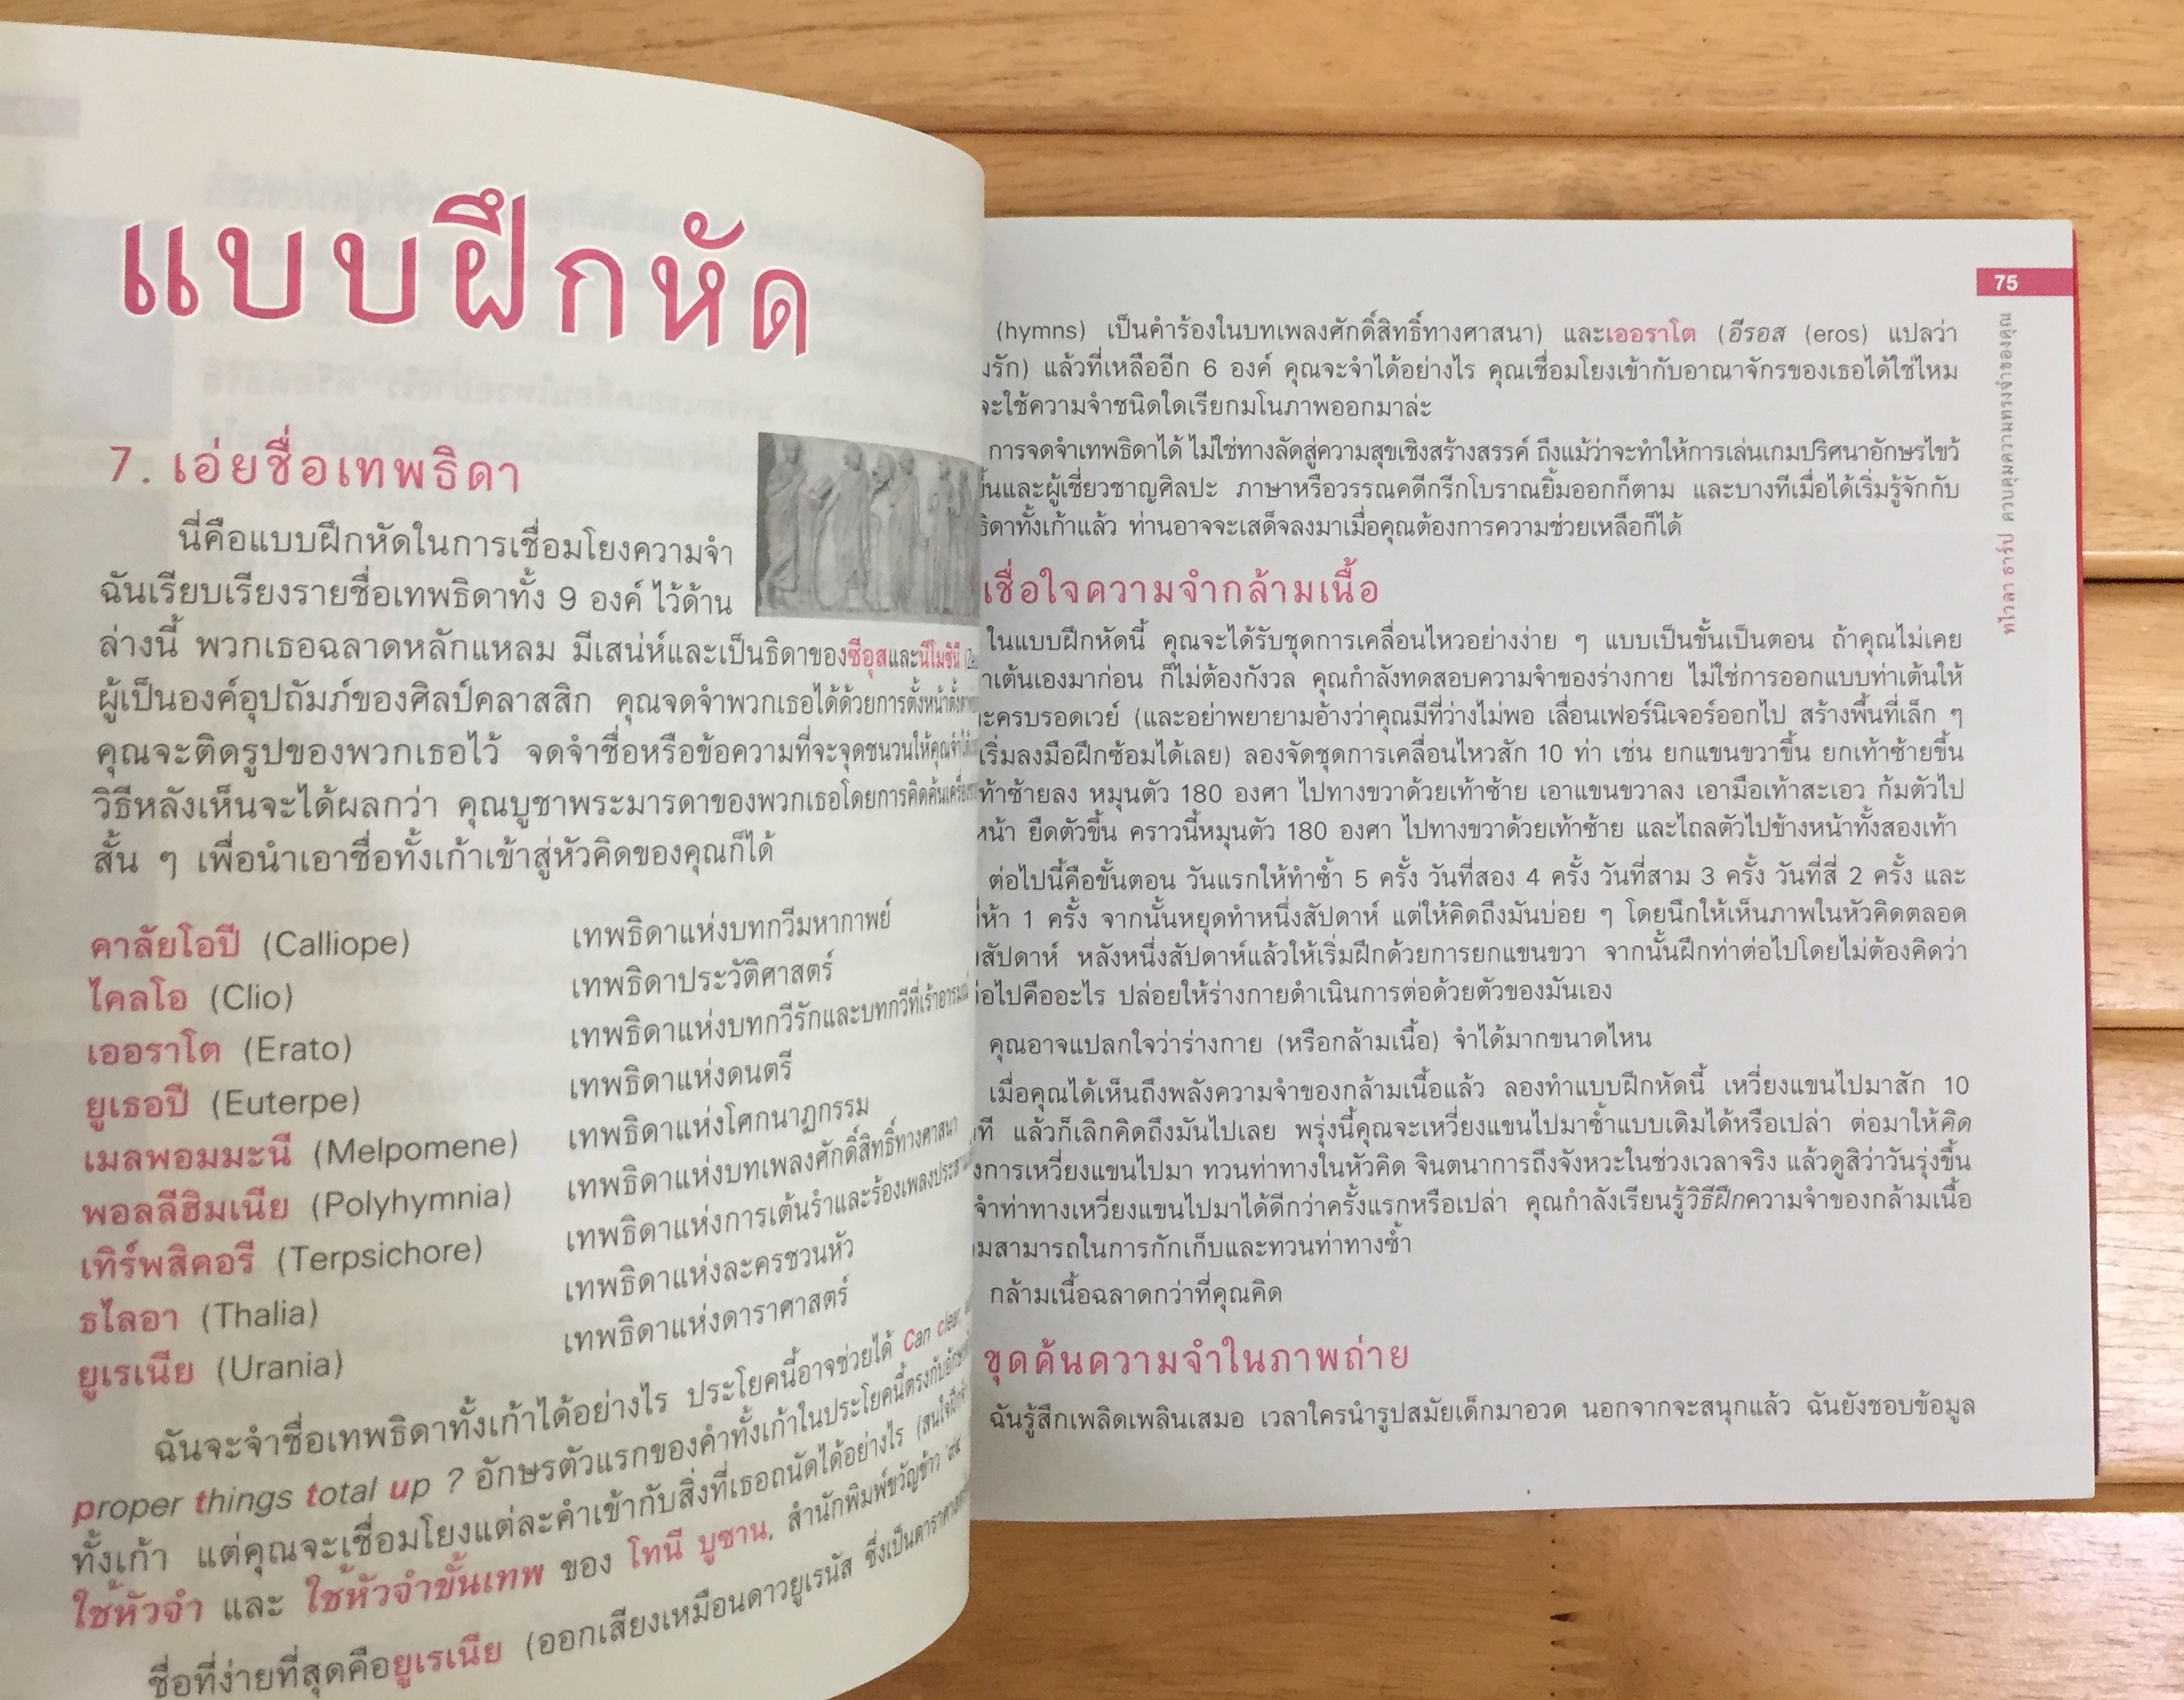 แบบฝึกหัด
7. เอ่ยชื่อเทพธิดา
นี่คือแบบฝึกหัดในการเชื่อมโยงความจำ
ฉันเรียบเรียงรายชื่อเทพธิดาทั้ง 9 องค์ ไว้ด้าน
ล่างนี้ พวกเธอฉลาดหลักแหลม มีเสน่ห์และเป็นธิดาของซีอุสและนีโมซินี
ผู้เป็นองค์อุปถัมภ์ของศิลป์คลาสสิก คุณจดจำพวกเธอได้ด้วยการตั้งหน้าตั้งตา
คุณจะติดรูปของพวกเธอไว้ จดจำชื่อหรือข้อความที่จะจุดชนวนให้คุณจำได้
วิธีหลังเห็นจะได้ผลกว่า คุณบูชาพระมารดาของพวกเธอโดยการคิดค้น
สั้น ๆ เพื่อนำเอาชื่อทั้งเก้าเข้าสู่หัวคิดของคุณก็ได้
คาลัยโอปี (Calliope) เทพธิดาแห่งบทกวีมหากาพย์
ไคลโอ (Clio) เทพธิดาประวัติศาสตร์
เออราโต (Erato) เทพธิดาแห่งบทกวีรักและบทกวีที่เร้าอารมณ์
ยูเธอปี (Euterpe) เทพธิดาแห่งดนตรี
เมลพอมมะนี (Melpomene) เทพธิดาแห่งโศกนาฏกรรม
พอลลีฮิมเนีย (Polyhymnia) เทพธิดาแห่งบทเพลงศักดิ์สิทธิ์ทางศาสนา
เทิร์พสิคอรี (Terpsichore) เทพธิดาแห่งการเต้นรำและร้องเพลง
ธไลอา (Thalia) เทพธิดาแห่งละครชวนหัว
ยูเรเนีย (Urania) เทพธิดาแห่งดาราศาสตร์
ฉันจะจำชื่อเทพธิดาทั้งเก้าได้อย่างไร ประโยคนี้อาจช่วยได้ Can clear,
proper things total up ? อักษรตัวแรกของคำทั้งเก้าในประโยคนี้ตรงกับ
ทั้งเก้า แต่คุณจะเชื่อมโยงแต่ละคำเข้ากับสิ่งที่เธอถนัดได้อย่างไร
ใช้หัวจำ และ ใช้หัวจำขั้นเทพ ของ โทนี บูซาน, สำนักพิมพ์ขวัญข้าว '๙๔
ชื่อที่ง่ายที่สุดคือยูเรเนีย (ออกเสียงเหมือนดาวยูเรนัส ซึ่งเป็น
75
ทไวลา ธาร์ป ควบคุมความทรงจำของคุณ
(hymns) เป็นคำร้องในบทเพลงศักดิ์สิทธิ์ทางศาสนา) และเออราโต (อีรอส (eros) แปลว่า
รัก) แล้วที่เหลืออีก 6 องค์ คุณจะจำได้อย่างไร คุณเชื่อมโยงเข้ากับอาณาจักรของเธอได้ใช่ไหม
จะใช้ความจำชนิดใดเรียกมโนภาพออกมาล่ะ
การจดจำเทพธิดาได้ ไม่ใช่ทางลัดสู่ความสุขเชิงสร้างสรรค์ ถึงแม้ว่าจะทำให้การเล่นเกมปริศนาอักษรไขว้
และผู้เชี่ยวชาญศิลปะ ภาษาหรือวรรณคดีกรีกโบราณยิ้มออกก็ตาม และบางทีเมื่อได้เริ่มรู้จักกับ
ธิดาทั้งเก้าแล้ว ท่านอาจจะเสด็จลงมาเมื่อคุณต้องการความช่วยเหลือก็ได้
เชื่อใจความจำกล้ามเนื้อ
ในแบบฝึกหัดนี้ คุณจะได้รับชุดการเคลื่อนไหวอย่างง่าย ๆ แบบเป็นขั้นเป็นตอน ถ้าคุณไม่เคย
เต้นเองมาก่อน ก็ไม่ต้องกังวล คุณกำลังทดสอบความจำของร่างกาย ไม่ใช่การออกแบบท่าเต้นให้
ละครบรอดเวย์ (และอย่าพยายามอ้างว่าคุณมีที่ว่างไม่พอ เลื่อนเฟอร์นิเจอร์ออกไป สร้างพื้นที่เล็ก ๆ
เริ่มลงมือฝึกซ้อมได้เลย) ลองจัดชุดการเคลื่อนไหวสัก 10 ท่า เช่น ยกแขนขวาขึ้น ยกเท้าซ้ายขึ้น
เท้าซ้ายลง หมุนตัว 180 องศา ไปทางขวาด้วยเท้าซ้าย เอาแขนขวาลง เอามือเท้าสะเอว ก้มตัวไป
หน้า ยืดตัวขึ้น คราวนี้หมุนตัว 180 องศา ไปทางขวาด้วยเท้าซ้าย และไถลตัวไปข้างหน้าทั้งสองเท้า
ต่อไปนี้คือขั้นตอน วันแรกให้ทำซ้ำ 5 ครั้ง วันที่สอง 4 ครั้ง วันที่สาม 3 ครั้ง วันที่สี่ 2 ครั้ง และ
ที่ห้า 1 ครั้ง จากนั้นหยุดทำหนึ่งสัปดาห์ แต่ให้คิดถึงมันบ่อย ๆ โดยนึกให้เห็นภาพในหัวคิดตลอด
สัปดาห์ หลังหนึ่งสัปดาห์แล้วให้เริ่มฝึกด้วยการยกแขนขวา จากนั้นฝึกท่าต่อไปโดยไม่ต้องคิดว่า
ต่อไปคืออะไร ปล่อยให้ร่างกายดำเนินการต่อด้วยตัวของมันเอง
คุณอาจแปลกใจว่าร่างกาย (หรือกล้ามเนื้อ) จำได้มากขนาดไหน
เมื่อคุณได้เห็นถึงพลังความจำของกล้ามเนื้อแล้ว ลองทำแบบฝึกหัดนี้ เหวี่ยงแขนไปมาสัก 10
ที แล้วก็เลิกคิดถึงมันไปเลย พรุ่งนี้คุณจะเหวี่ยงแขนไปมาซ้ำแบบเดิมได้หรือเปล่า ต่อมาให้คิด
การเหวี่ยงแขนไปมา ทวนท่าทางในหัวคิด จินตนาการถึงจังหวะในช่วงเวลาจริง แล้วดูสิว่าวันรุ่งขึ้น
จำท่าทางเหวี่ยงแขนไปมาได้ดีกว่าครั้งแรกหรือเปล่า คุณกำลังเรียนรู้วิธีฝึกความจำของกล้ามเนื้อ
สามารถในการกักเก็บและทวนท่าทางซ้ำ
กล้ามเนื้อฉลาดกว่าที่คุณคิด
ขุดค้นความจำในภาพถ่าย
ฉันรู้สึกเพลิดเพลินเสมอ เวลาใครนำรูปสมัยเด็กมาอวด นอกจากจะสนุกแล้ว ฉันยังชอบข้อมูล